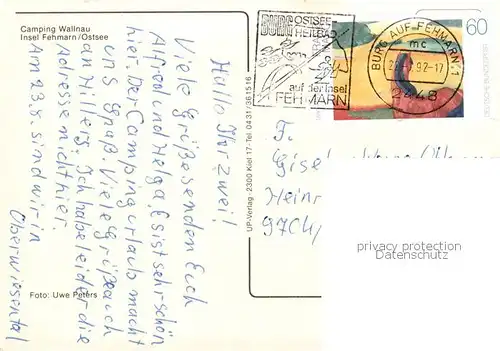 Camping Wallnau
Insel Fehmarn/Ostsee
Hallo Ihr zwei!
Viele Grüße senden Euch
Alfred und Helga. Es ist sehr schön
hier. Der Campingurlaub macht
uns Spaß. Viele Grüße auch
an Hillers. Ich habe leider die
Adresse nicht hier.
Am 23.8. sind wir in
Oberwiesental
Foto: Uwe Peters
UP-Verlag · 2300 Kiel 17 · Tel 04 31 / 36 15 16
BURG OSTSEE
HEILBAD
auf der Insel
FEHMARN
BURG AUF FEHMARN 1
mc
92-17
2448
60
DEUTSCHE BUNDESPOST
F.
Heinr
privacy protection
Datenschutz